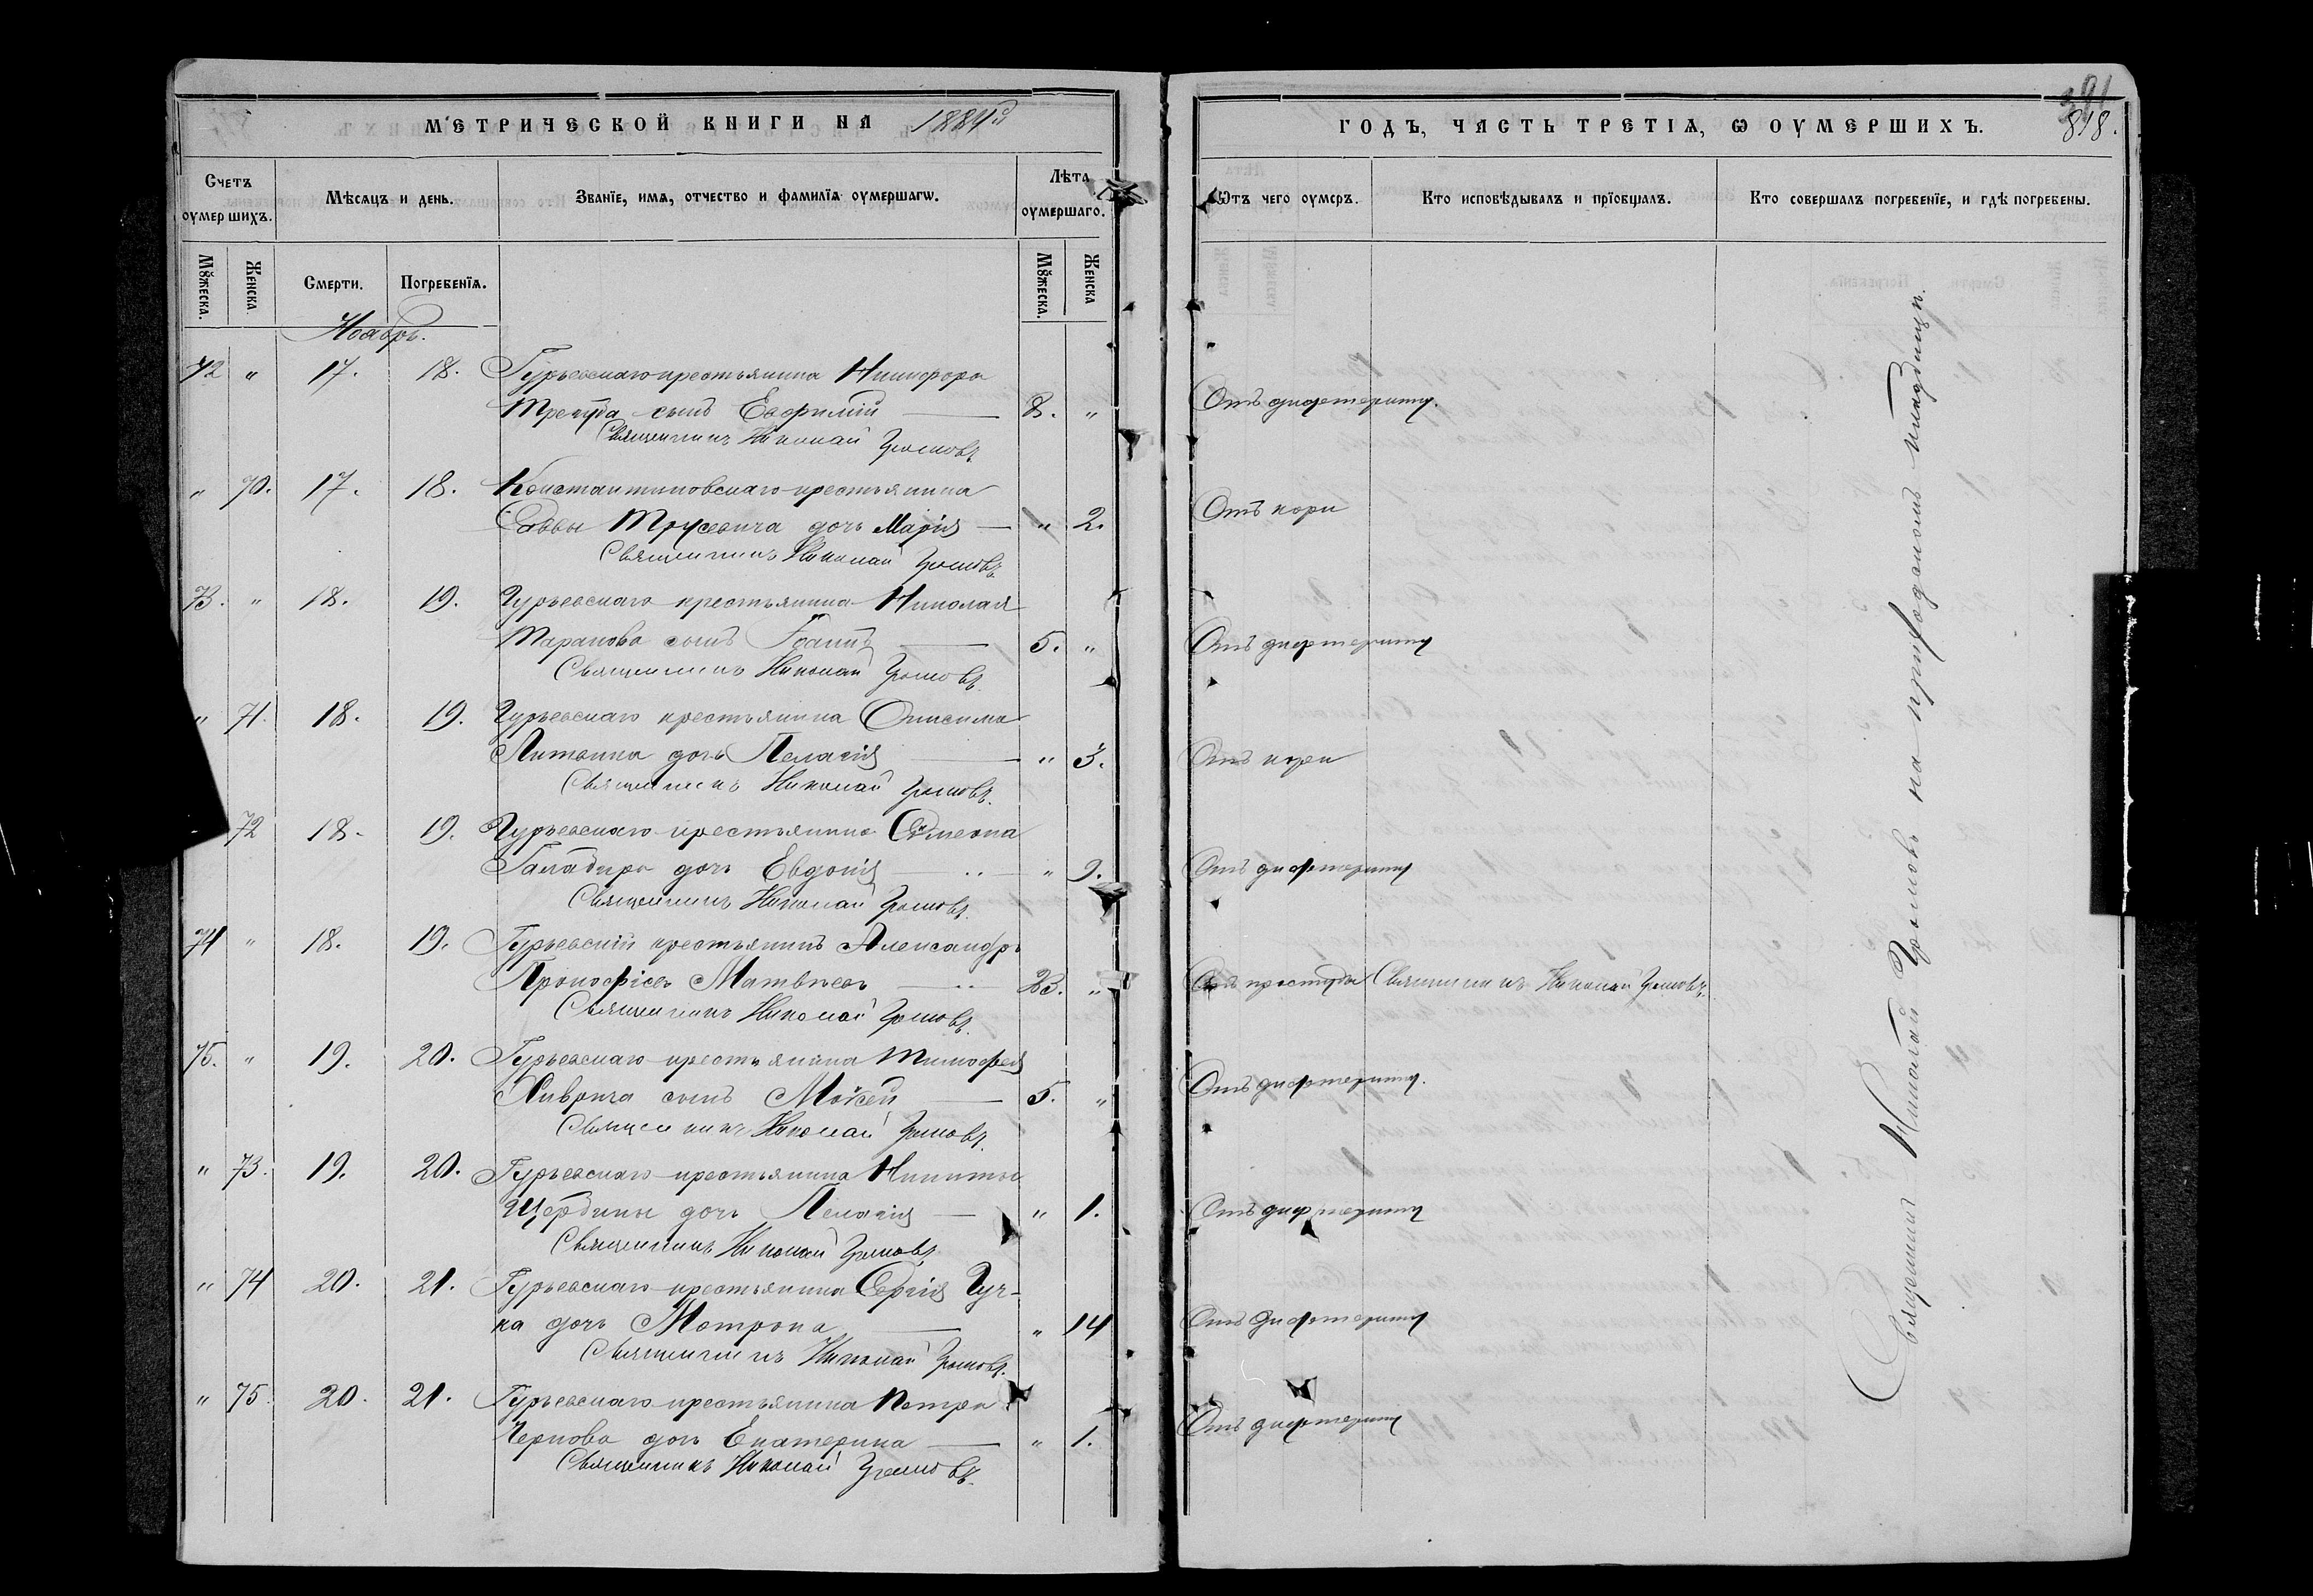 МЕТРИЧЕСКОЙ КНИГИ НА 1884й
Счетъ оумершихъ.
Мѣсяцъ и день.
Званїе, имя, отчество и фамилїя оумершагѡ.
Лѣта оумершаго.
Мꙋжеска.
Женска
Смерти.
Погребенїя.
Мꙋжеска.
Женска
Ноябрь.
72 " 17. 18. Гурьевскаго крестьянина Никифора
сынъ Евфимій 8. "
Священникъ Николай Громовъ
" 70. 17. 18. Константиновскаго крестьянина
Саввы Трусевича дочь Марія " 2.
Священникъ Николай Громовъ
73. " 18. 19. Гурьевскаго крестьянина Николая
Таранова сынъ Іоаннъ 5. "
Священникъ Николай Громовъ
" 71. 18. 19. Гурьевскаго крестьянина Онисима
Литвина дочь Пелагія " 3.
Священникъ Николай Громовъ.
72 18. 19. Гурьевскаго крестьянина Сѵмеона
дочь Евдокія " 9.
Священникъ Николай Громовъ.
74 " 18. 19. Гурьевскій крестьянинъ Александръ
Прокофіевъ Матвѣевъ 23. "
Священникъ Николай Громовъ.
75. " 19. 20. Гурьевскаго крестьянина Тимофея
сынъ Моѵсей 5. "
Священникъ Николай Громовъ.
" 73. 19. 20. Гурьевскаго крестьянина Никиты
Щербины дочь Пелагія " 1.
Священникъ Николай Громовъ
" 74 20. 21. Гурьевскаго крестьянина Сергія Гуч-
ка дочь Матрона " 14
Священникъ Николай Громовъ.
" 75. 20. 21. Гурьевскаго крестьянина Петра
Чернова дочь Екатерина " 1.
Священникъ Николай Громовъ.
ГОДЪ, ЧАСТЬ ТРЕТІЯ, Ѡ ОУМЕРШИХЪ.
391
818.
Ѿтъ чего оумеръ.
Кто исповѣдывалъ и прїобщалъ.
Кто совершалъ погребенїе, и гдѣ погребены.
Отъ дифтериту.
Отъ кори
Отъ дифтериту
Отъ кори
Отъ дифтериту
Отъ простуды Священникъ Николай Громовъ.
Отъ дифтериту.
Отъ дифтериту
Отъ дифтериту
Отъ дифтериту
Священникъ Николай Громовъ на приходскомъ кладбищѣ.